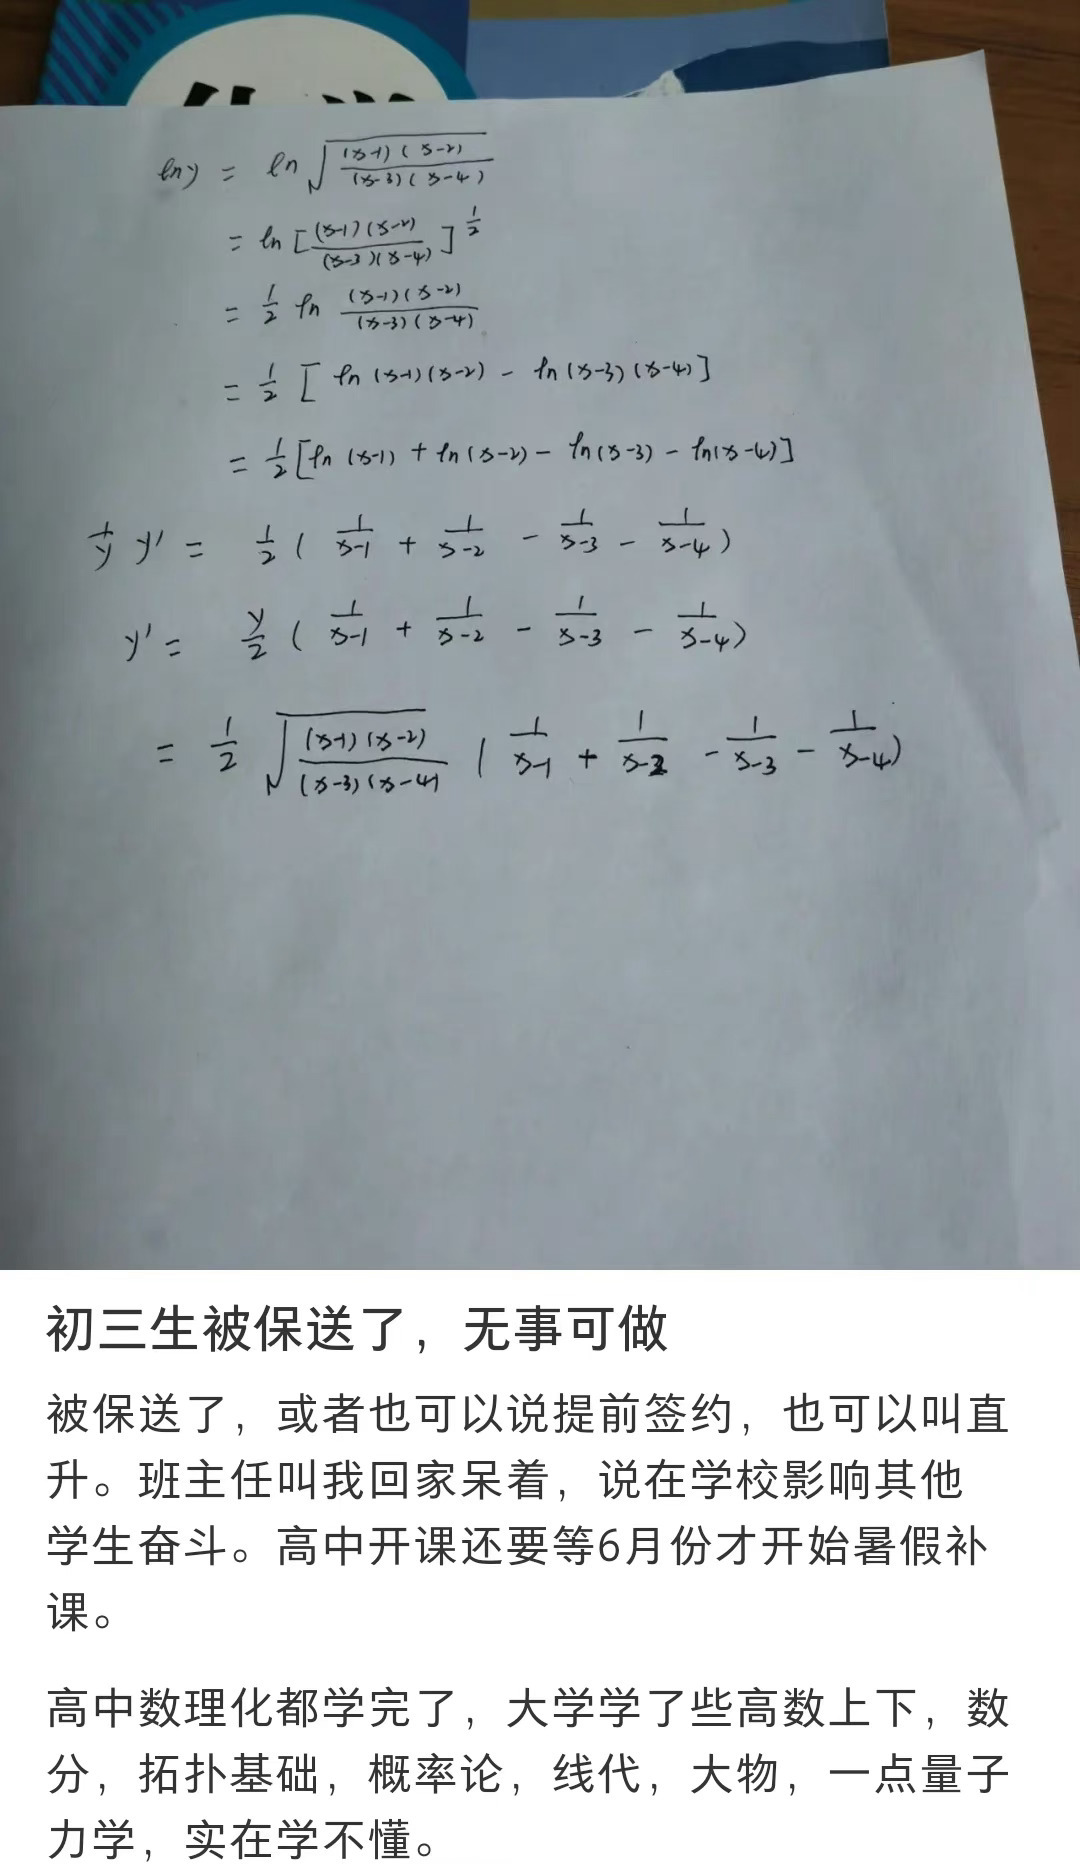 lny = ln√((x-1)(x-2)/(x-3)(x-4))
= ln[(x-1)(x-2)/(x-3)(x-4)]^(1/2)
= 1/2 ln (x-1)(x-2)/(x-3)(x-4)
= 1/2 [ln(x-1)(x-2) - ln(x-3)(x-4)]
= 1/2 [ln(x-1) + ln(x-2) - ln(x-3) - ln(x-4)]
1/y y' = 1/2 (1/(x-1) + 1/(x-2) - 1/(x-3) - 1/(x-4))
y' = y/2 (1/(x-1) + 1/(x-2) - 1/(x-3) - 1/(x-4))
= 1/2 √((x-1)(x-2)/(x-3)(x-4)) (1/(x-1) + 1/(x-2) - 1/(x-3) - 1/(x-4))
初三生被保送了，无事可做
被保送了，或者也可以说提前签约，也可以叫直
升。班主任叫我回家呆着，说在学校影响其他
学生奋斗。高中开课还要等6月份才开始暑假补
课。
高中数理化都学完了，大学学了些高数上下，数
分，拓扑基础，概率论，线代，大物，一点量子
力学，实在学不懂。